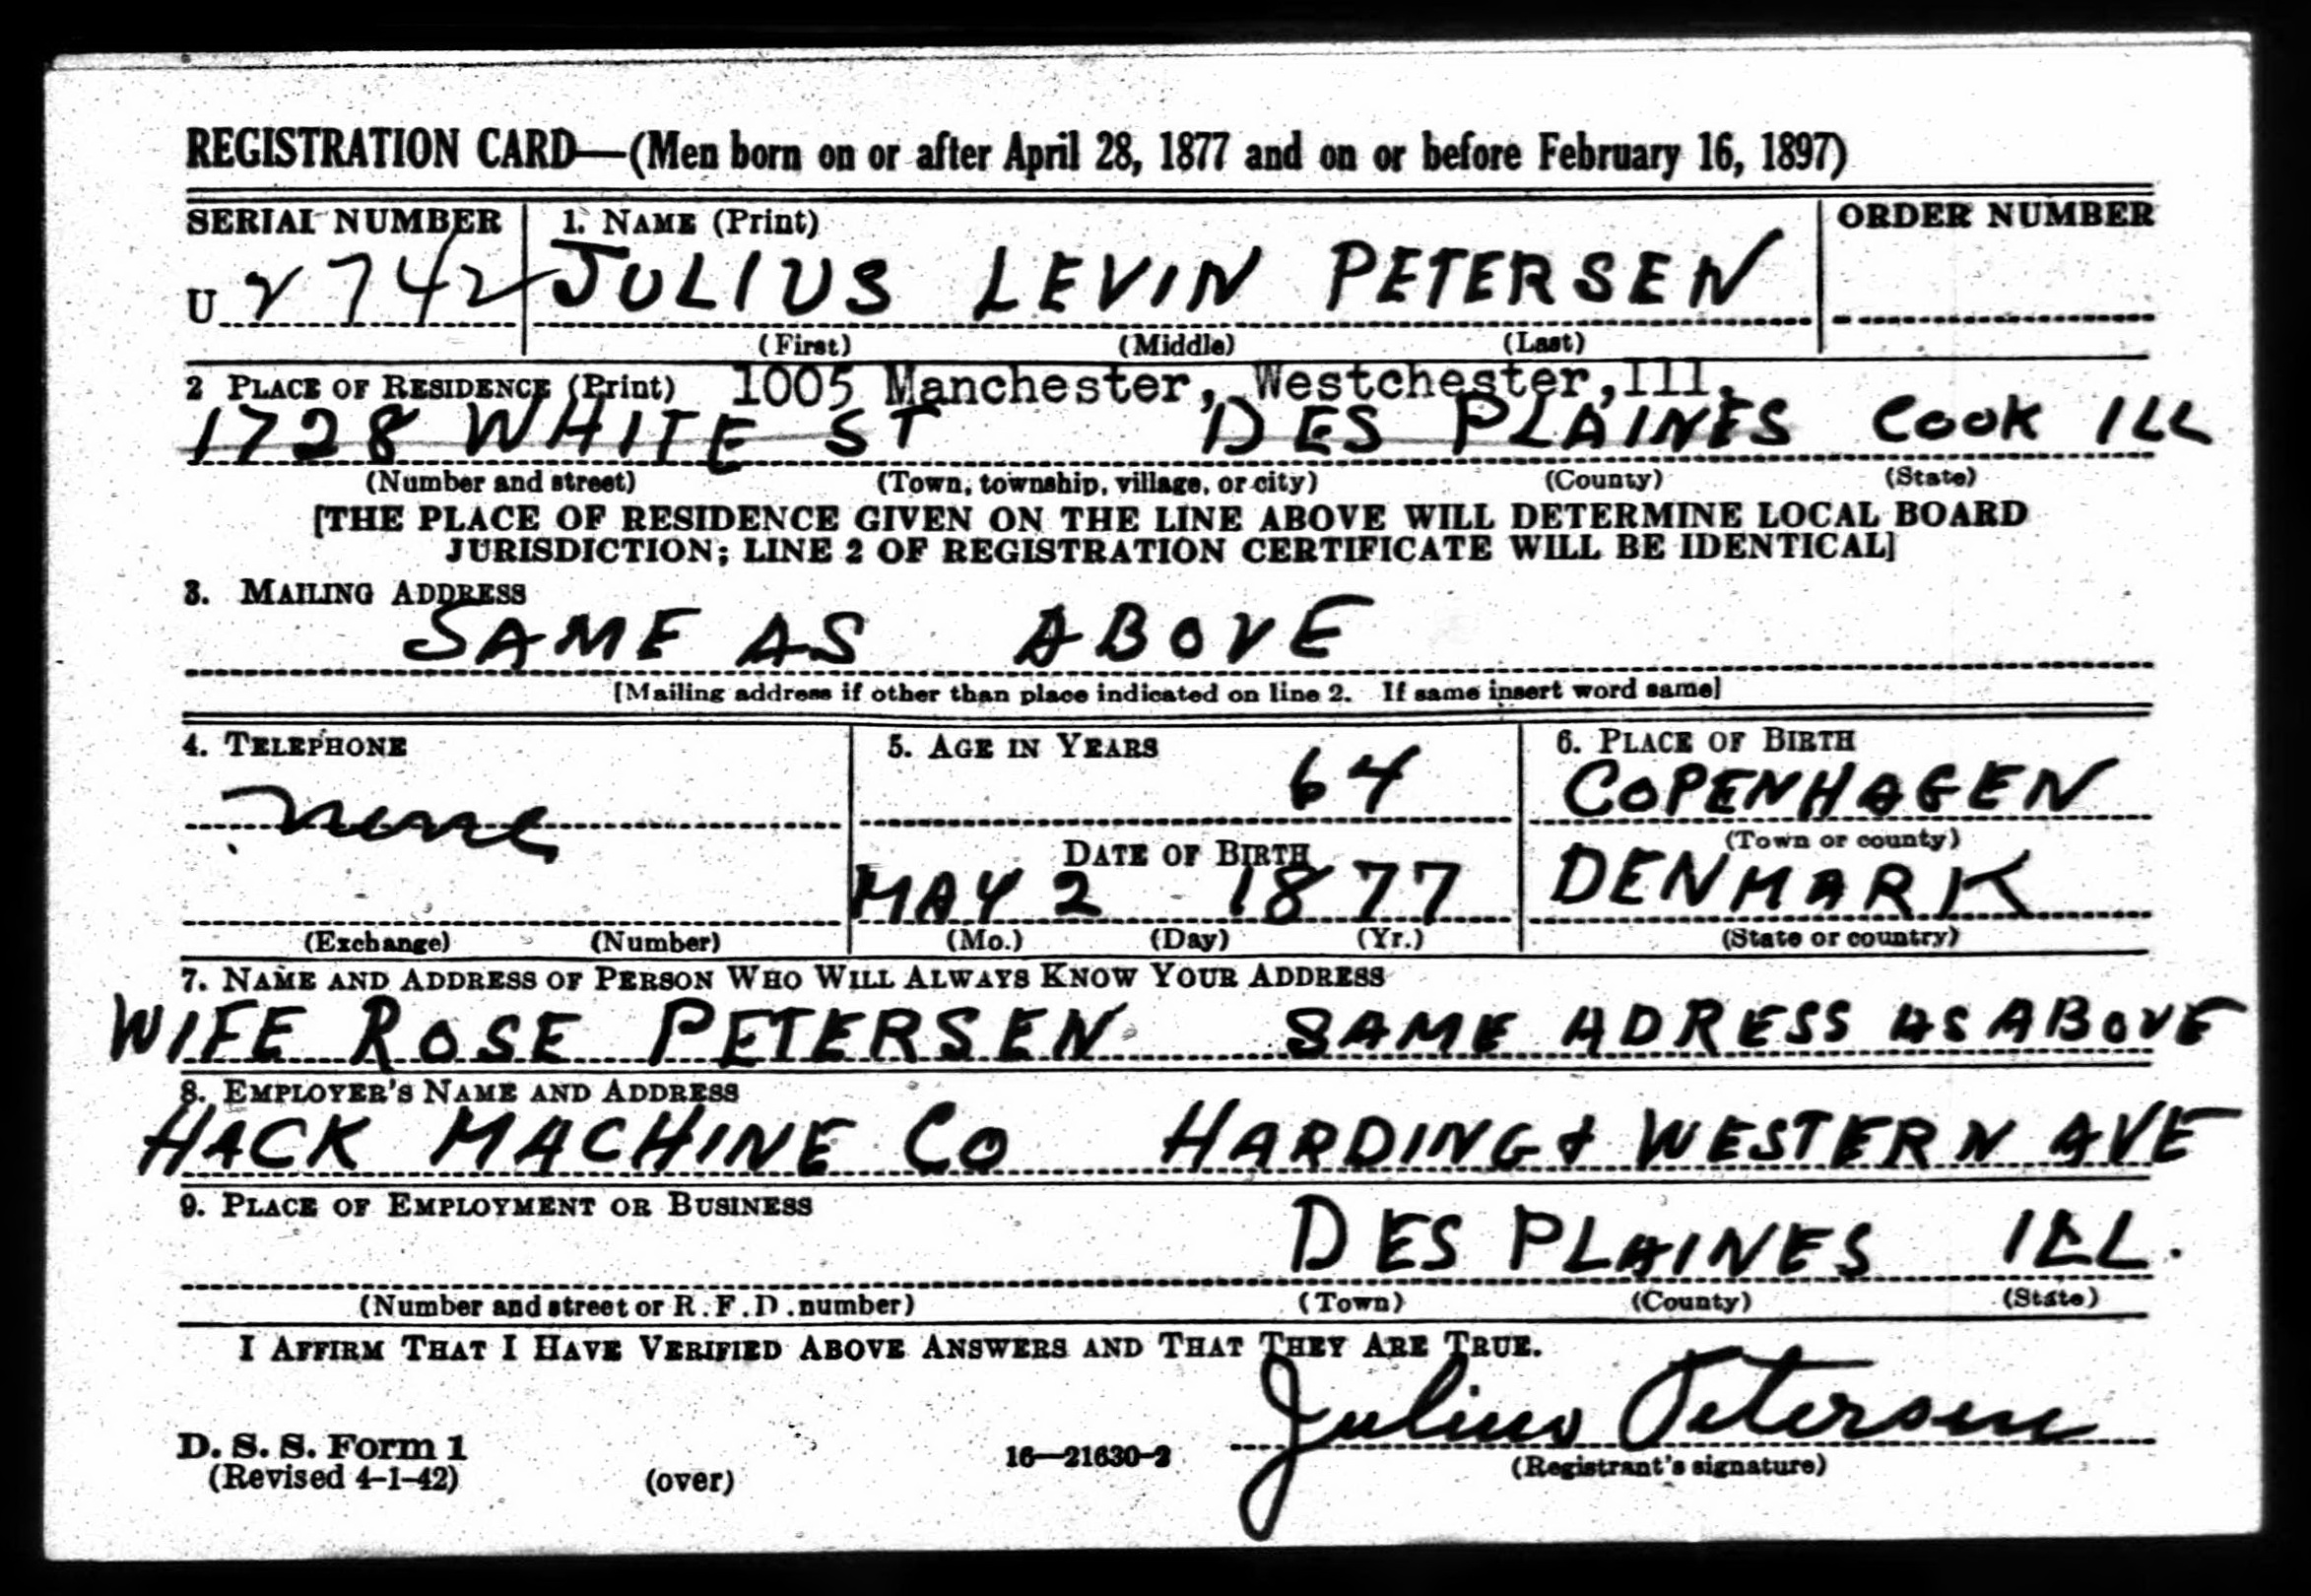 REGISTRATION CARD—(Men born on or after April 28, 1877 and on or before February 16, 1897)
SERIAL NUMBER 1. NAME (Print) ORDER NUMBER
U 2742 JULIUS LEVIN PETERSEN
(First) (Middle) (Last)
2 PLACE OF RESIDENCE (Print) 1005 Manchester, Westchester, Ill.
1728 WHITE ST DES PLAINES COOK ILL
(Number and street) (Town, township, village, or city) (County) (State)
[THE PLACE OF RESIDENCE GIVEN ON THE LINE ABOVE WILL DETERMINE LOCAL BOARD
JURISDICTION; LINE 2 OF REGISTRATION CERTIFICATE WILL BE IDENTICAL]
3. MAILING ADDRESS
SAME AS ABOVE
[Mailing address if other than place indicated on line 2. If same insert word same]
4. TELEPHONE 5. AGE IN YEARS 6. PLACE OF BIRTH
none 64 COPENHAGEN
(Town or county)
DATE OF BIRTH
MAY 2 1877 DENMARK
(Exchange) (Number) (Mo.) (Day) (Yr.) (State or country)
7. NAME AND ADDRESS OF PERSON WHO WILL ALWAYS KNOW YOUR ADDRESS
WIFE ROSE PETERSEN SAME ADRESS AS ABOVE
8. EMPLOYER'S NAME AND ADDRESS
HACK MACHINE CO HARDING & WESTERN AVE
9. PLACE OF EMPLOYMENT OR BUSINESS
DES PLAINES ILL.
(Number and street or R.F.D. number) (Town) (County) (State)
I AFFIRM THAT I HAVE VERIFIED ABOVE ANSWERS AND THAT THEY ARE TRUE.
Julius Petersen
D. S. S. Form 1
(Revised 4-1-42) (over) 16—21630-2 (Registrant's signature)